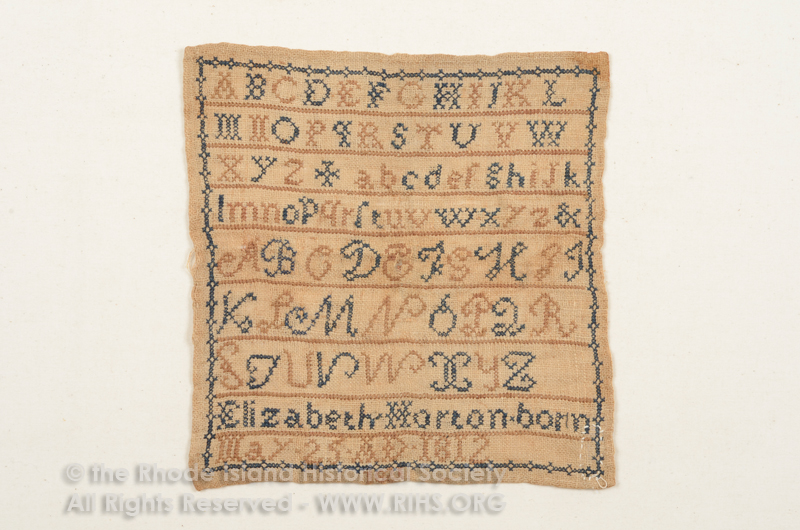 A B C D E F G H I J K L
M N O P q R S T U V W
X Y Z a b c d e f g h i J k
l m n o p q r ſ t u v w x y z &
A B C D E F G H I J
K L M N O P Q R
S T U V W X Y Z
Elizabeth Horton born
May 25 AD 1812
© the Rhode Island Historical Society
All Rights Reserved - WWW.RIHS.ORG